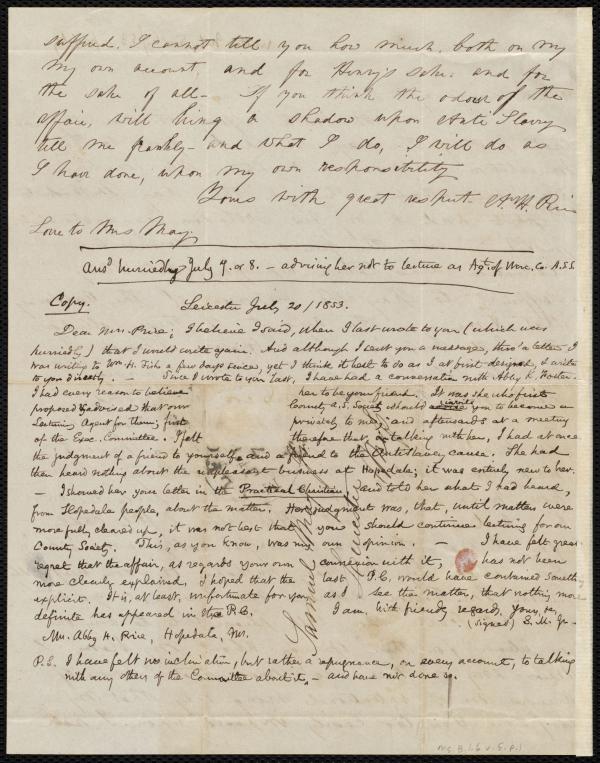 suffered. I cannot tell you how much, both on my
my own account and for Henry's sake. and for
the sake of all– If you think the odour of the
affair, will bring a shadow upon Anti Slavery
tell me frankly– and what I do, I will do as
I have done, upon my own responsibility
Yours with great respect. A. H. Rice
Love to Mrs May.
Ansd hurriedly July 7. or 8. – advising her not to lecture as Agt. of Worc. Co. A.S.S.
Copy. Leicester July 20/1853.
Dear Mrs. Rice; I believe I said, when I last wrote to you (which was
hurriedly) that I would write again. And although I sent you a message, thro' a letter I
was writing to Wm H. Fish a few days since, yet I think it best to do as I at first designed, & write
to you directly. – Since I wrote to you last, I have had a conversation with Abby K. Foster.
I had every reason to believe her to be your friend. It was she who first
proposed & advised that our County A.S. Society should invite you to become a
Lecturing Agent for them; first privately to me, and afterwards at a meeting
of the Exec. Committee. I felt therefore that, in talking with her, I had at once
the judgment of a friend to yourself, and a friend to the Antislavery cause. She had
then heard nothing about the unpleasant business at Hopedale; it was entirely new to her.
– I showed her your letter in the Practical Christian and told her what I had heard,
from Hopedale people, about the matter. Her judgment was, that, until matters were
more fully cleared up, it was not best that you should continue lecturing for our
County Society. This, as you know, was my own opinion. – I have felt great
regret that the affair, as regards your own connexion with it, has not been
more clearly explained. I hoped that the last P.C. would have contained something
explicit. It is, at least, unfortunate for you, as I see the matter, that nothing more
definite has appeared in the P.C. I am, with friendly regard, Yours, &c,
(signed) S. M. Jr.
Mrs. Abby H. Rice, Hopedale, Ms.
P.S. I have felt no inclination, but rather a repugnance, on every account, to talking
with any others of the Committee about it, – and have not done so.
Samuel May
Leicester
Ms. B.1.6 v.5, p.1